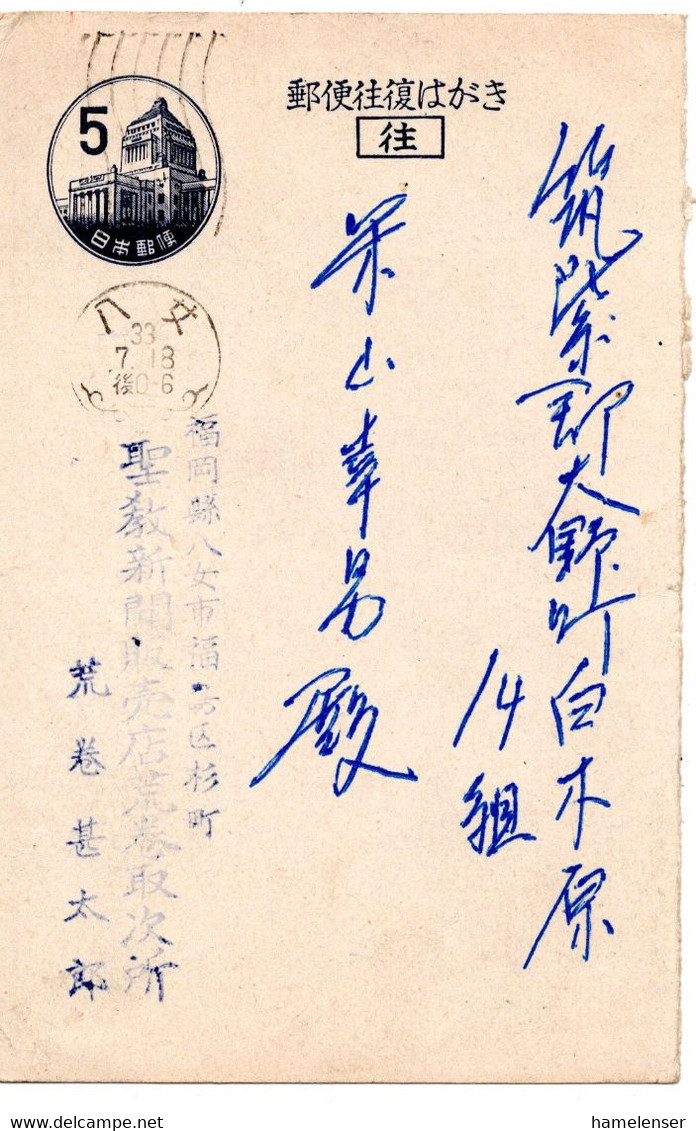 郵便往復はがき
往
5
日本郵便
八女
33
7.18
後0-6
筑紫郡大野町白木原
14組
山幸男殿
福岡縣八女市福島区杉町
聖教新聞販売店荒巻取次所
荒巻甚太郎
hamelenser